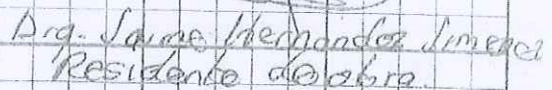 Arq. Jaime Hernandez Jimenez
Residente de obra.